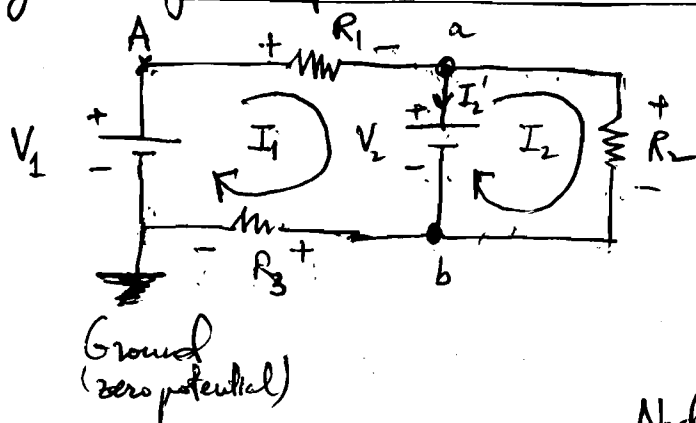 A
+ R₁ -
a
+
V₁
-
I₁
+
I₂'
V₂
-
I₂
+
R₂
-
- R₃ +
b
Ground
(zero potential)